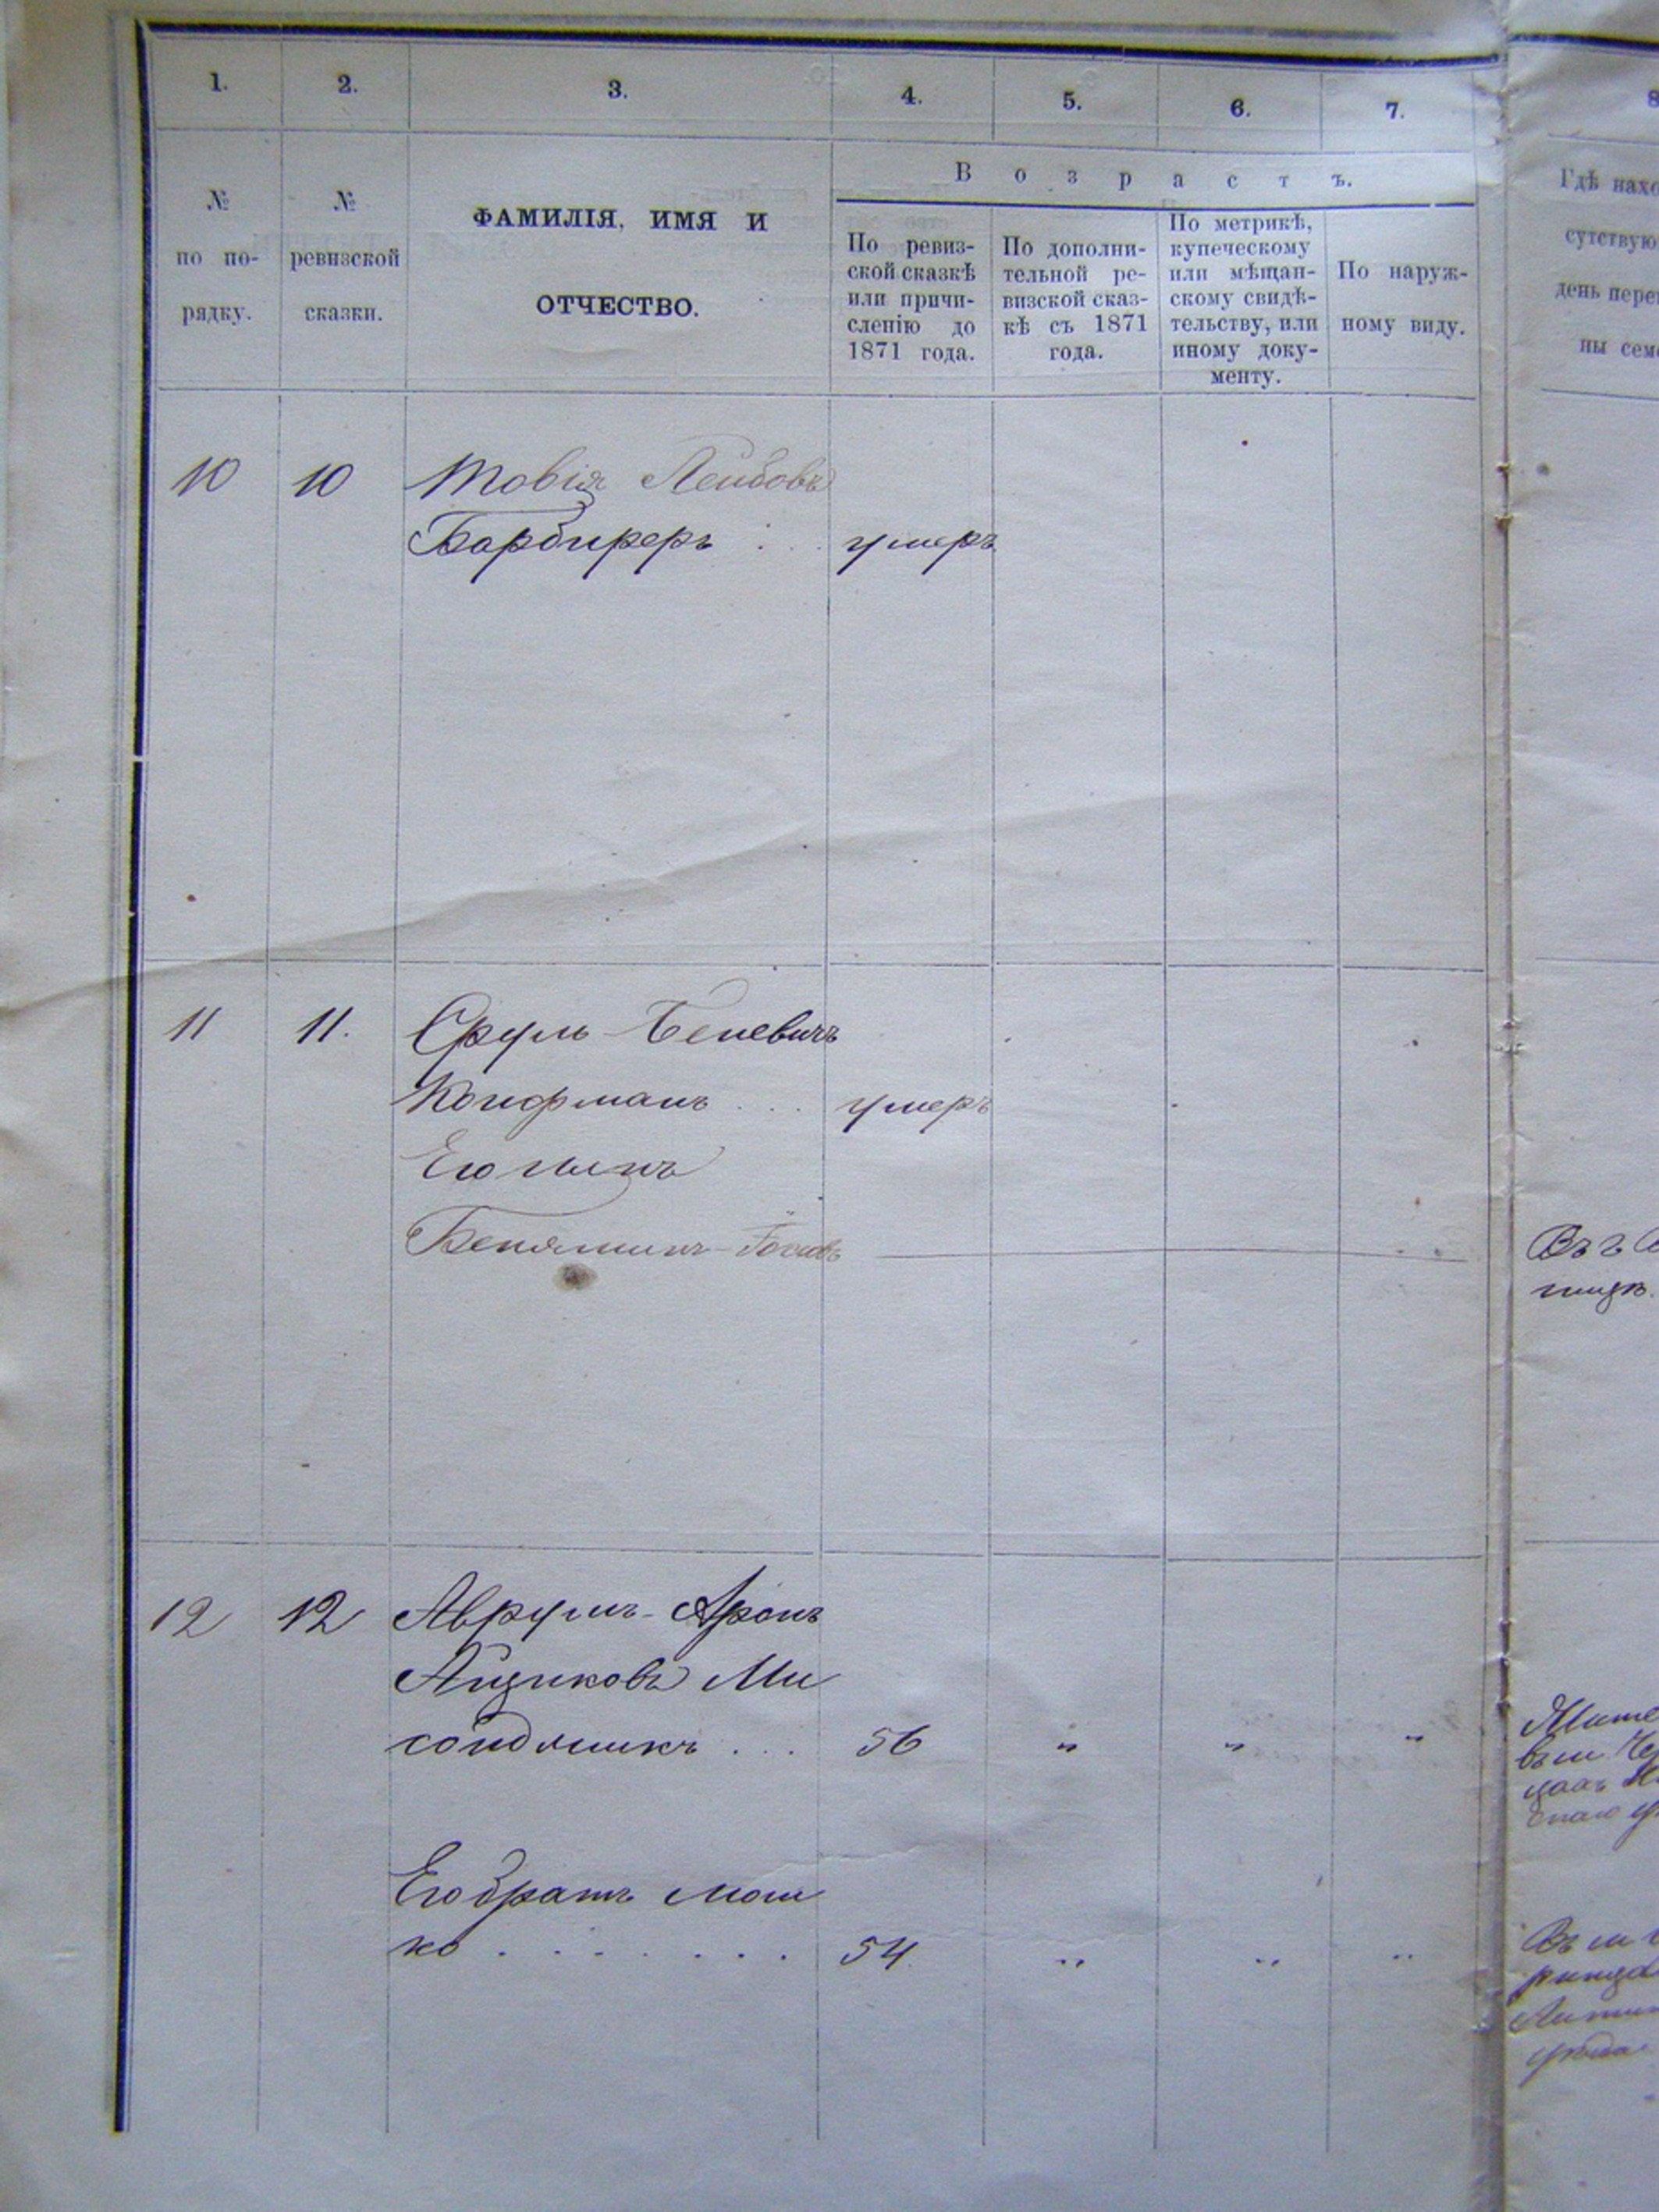 1. 2. 3. 4. 5. 6. 7. 8
Возрастъ.
№ по по-
рядку.
№
ревизской
сказки.
ФАМИЛІЯ, ИМЯ И
ОТЧЕСТВО.
По ревиз-
ской сказкѣ
или причи-
сленію до
1871 года.
По дополни-
тельной ре-
визской сказ-
кѣ съ 1871
года.
По метрикѣ,
купеческому
или мѣщан-
скому свидѣ-
тельству, или
иному доку-
менту.
По наруж-
ному виду.
Гдѣ нахо
сутствую
день пере
ны сем
10 10 Товія Лейбовъ
Барбиреръ . . . умеръ
11 11. Сруль Беневичъ
Кауфманъ . . . умеръ
Его сынъ
Бенямин
12 12 Аврумъ-Аронъ
Айзиковъ Ми
сондзникъ . . . 56 " " "
Его братъ Мош
ко . . . . . . . 54 " " "